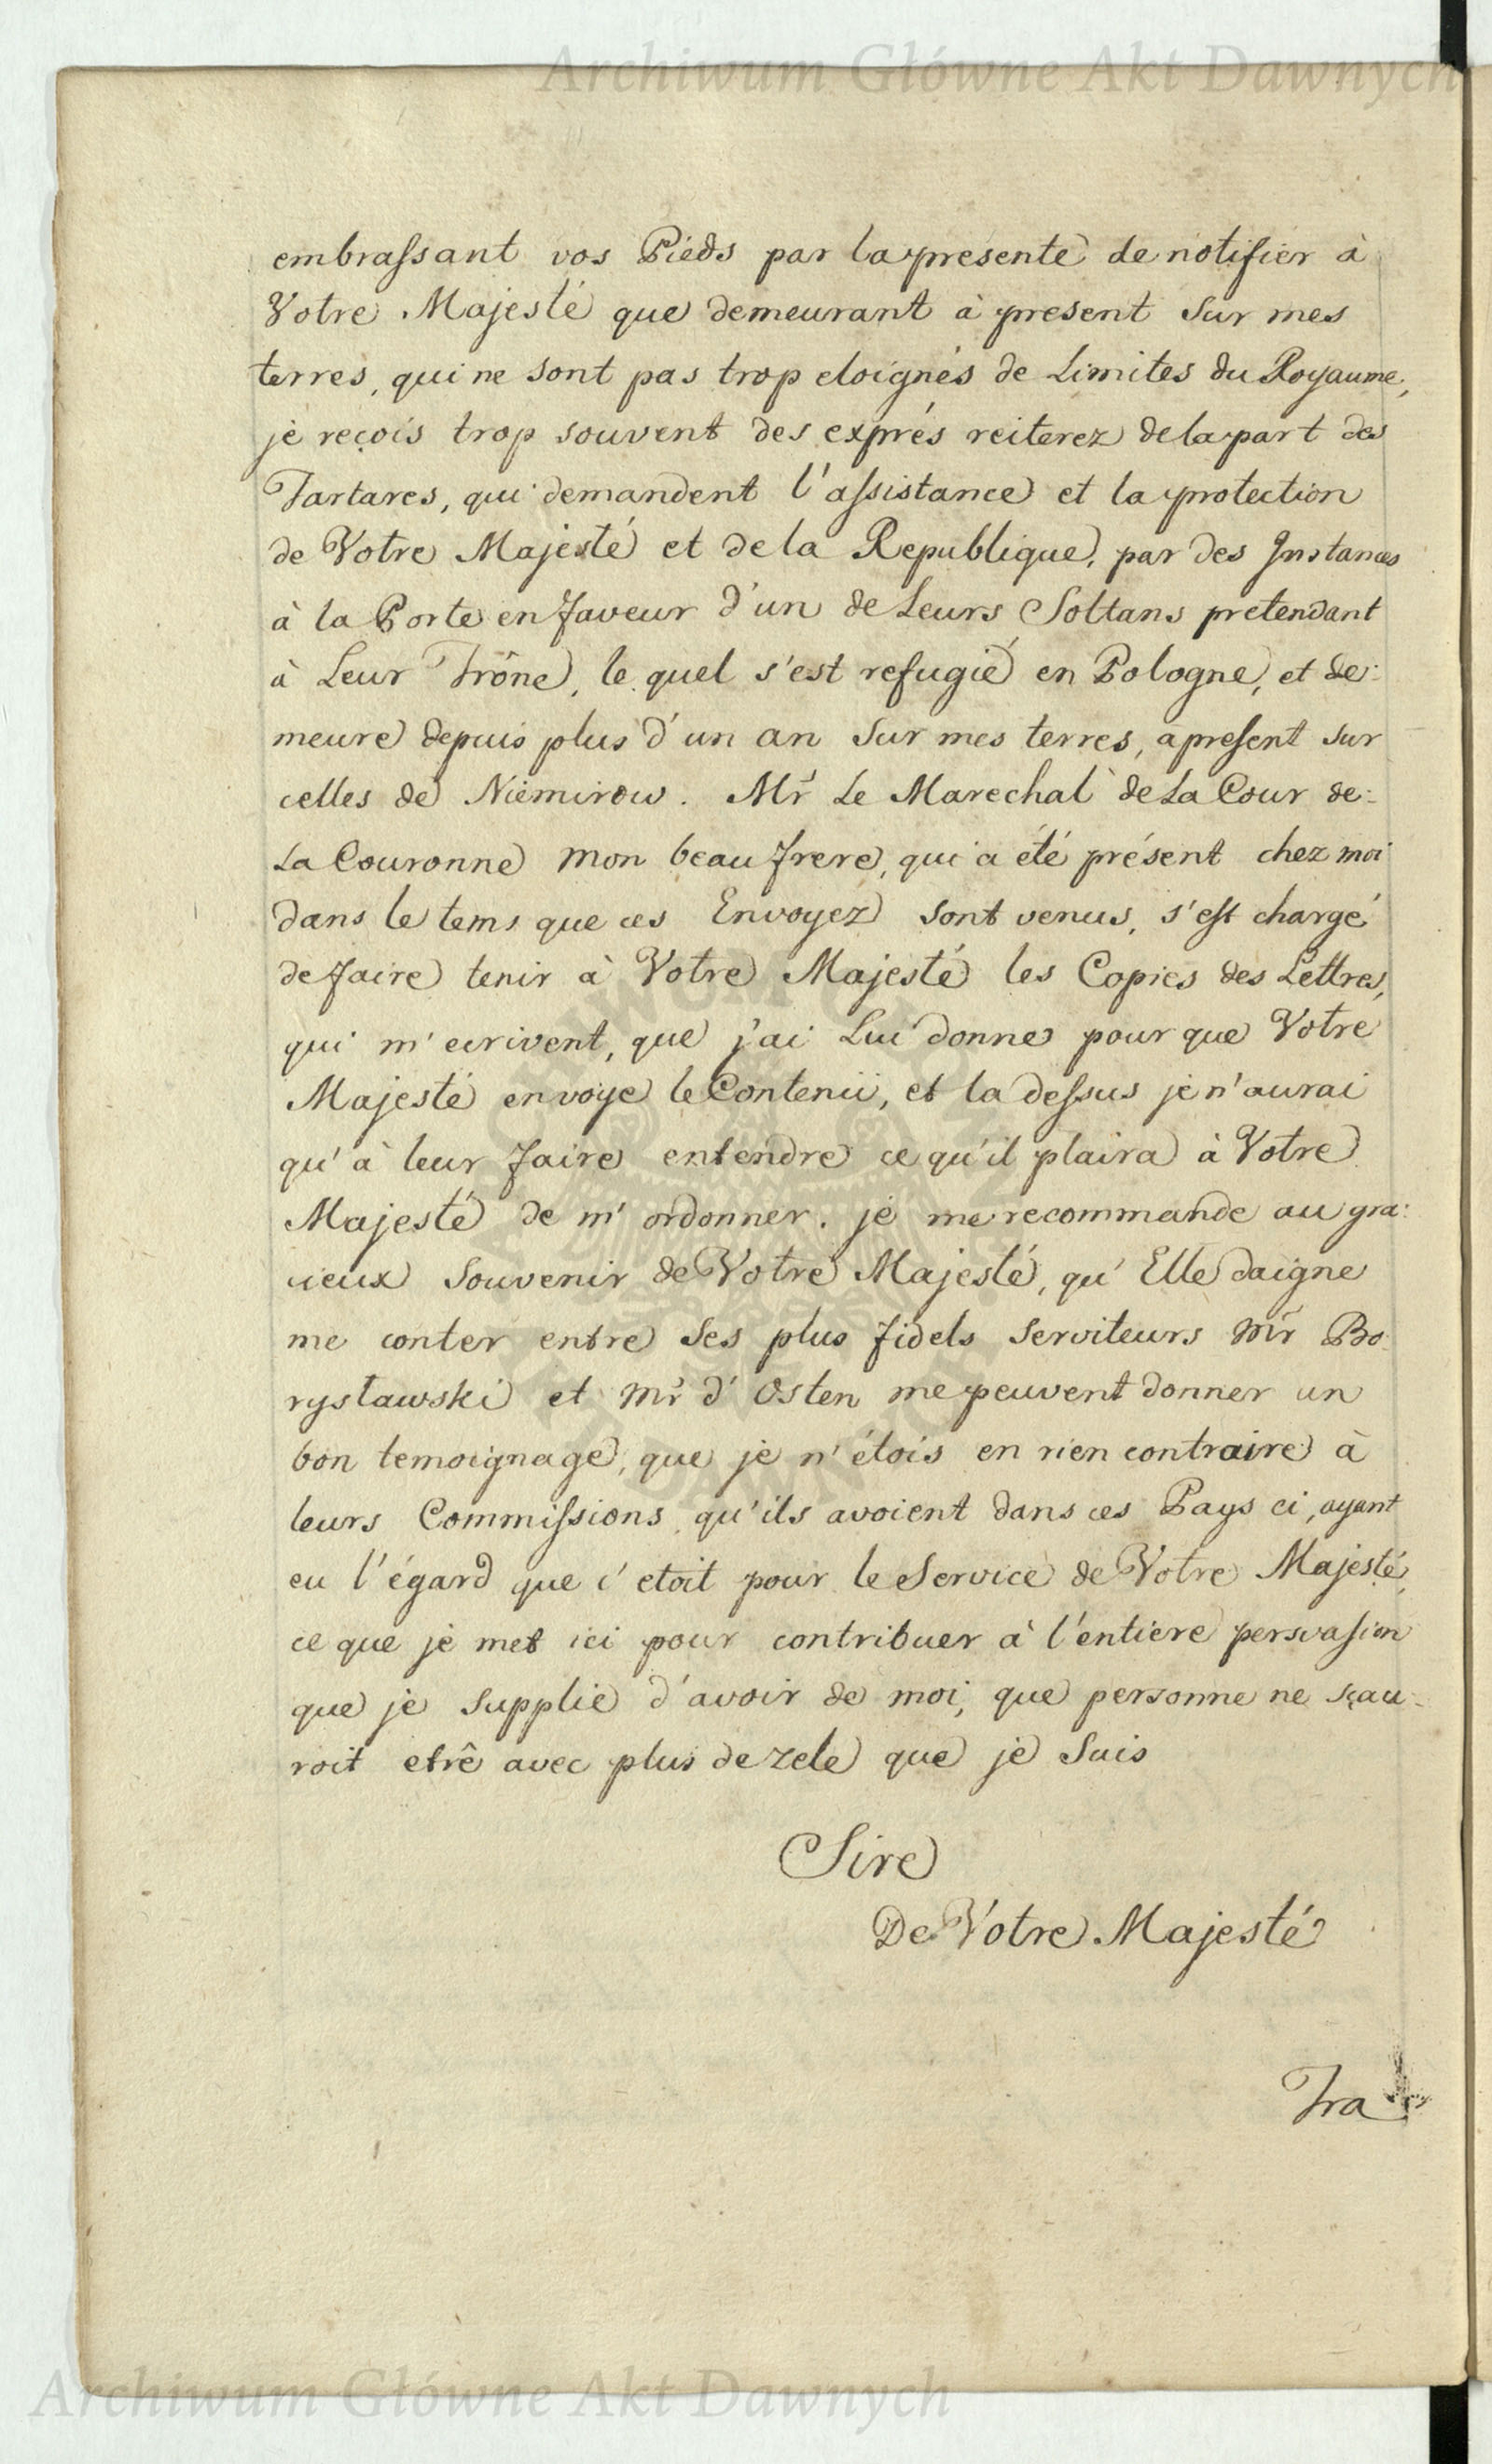 Archiwum Główne Akt Dawnych
embraſsant vos Pieds par la presente de notifier à
Votre Majesté que demeurant à present sur mes
terres, qui ne sont pas trop eloignés de Limites du Royaume,
je reçois trop souvent des exprés reiterez de la part des
Tartares, qui demandent l'aſsistance et la protection
de Votre Majesté et de la Republique, par des Instances
à la Porte en faveur d'un de Leurs Soltans pretendant
à Leur Trône, le quel s'est refugié en Pologne, et de:
meure depuis plus d'un an sur mes terres, apreſent sur
celles de Niemirow. Mr Le Marechal de La Cour de:
La Couronne mon beau frere, qui a été présent chez moi
dans le tems que ces Envoyez sont venus, s'eſt chargé
de faire tenir à Votre Majesté les Copies des Lettres,
qui m'ecrivent, que j'ai Lui donne pour que Votre
Majesté envoye le Contenü, et la deſsus je n'aurai
qu'à leur faire entendre ce qu'il plaira à Votre
Majesté de m'ordonner. je me recommande au gra:
cieux Souvenir de Votre Majesté, qu'Elle daigne
me conter entre Ses plus fidels Serviteurs Mr Bo:
rysławski et Mr d'Osten me peuvent donner un
bon temoignage, que je n'étois en rien contraire à
leurs Commiſsions, qu'ils avoient dans ces Pays ci, ayant
eu l'égard que c'etoit pour le Service de Votre Majesté,
ce que je met ici pour contribuer à l'entiere persvaſion
que je Supplie d'avoir de moi, que personne ne sçau-
roit etrê avec plus de zele que je Suis
Sire
De Votre Majesté
Tra
Archiwum Główne Akt Dawnych